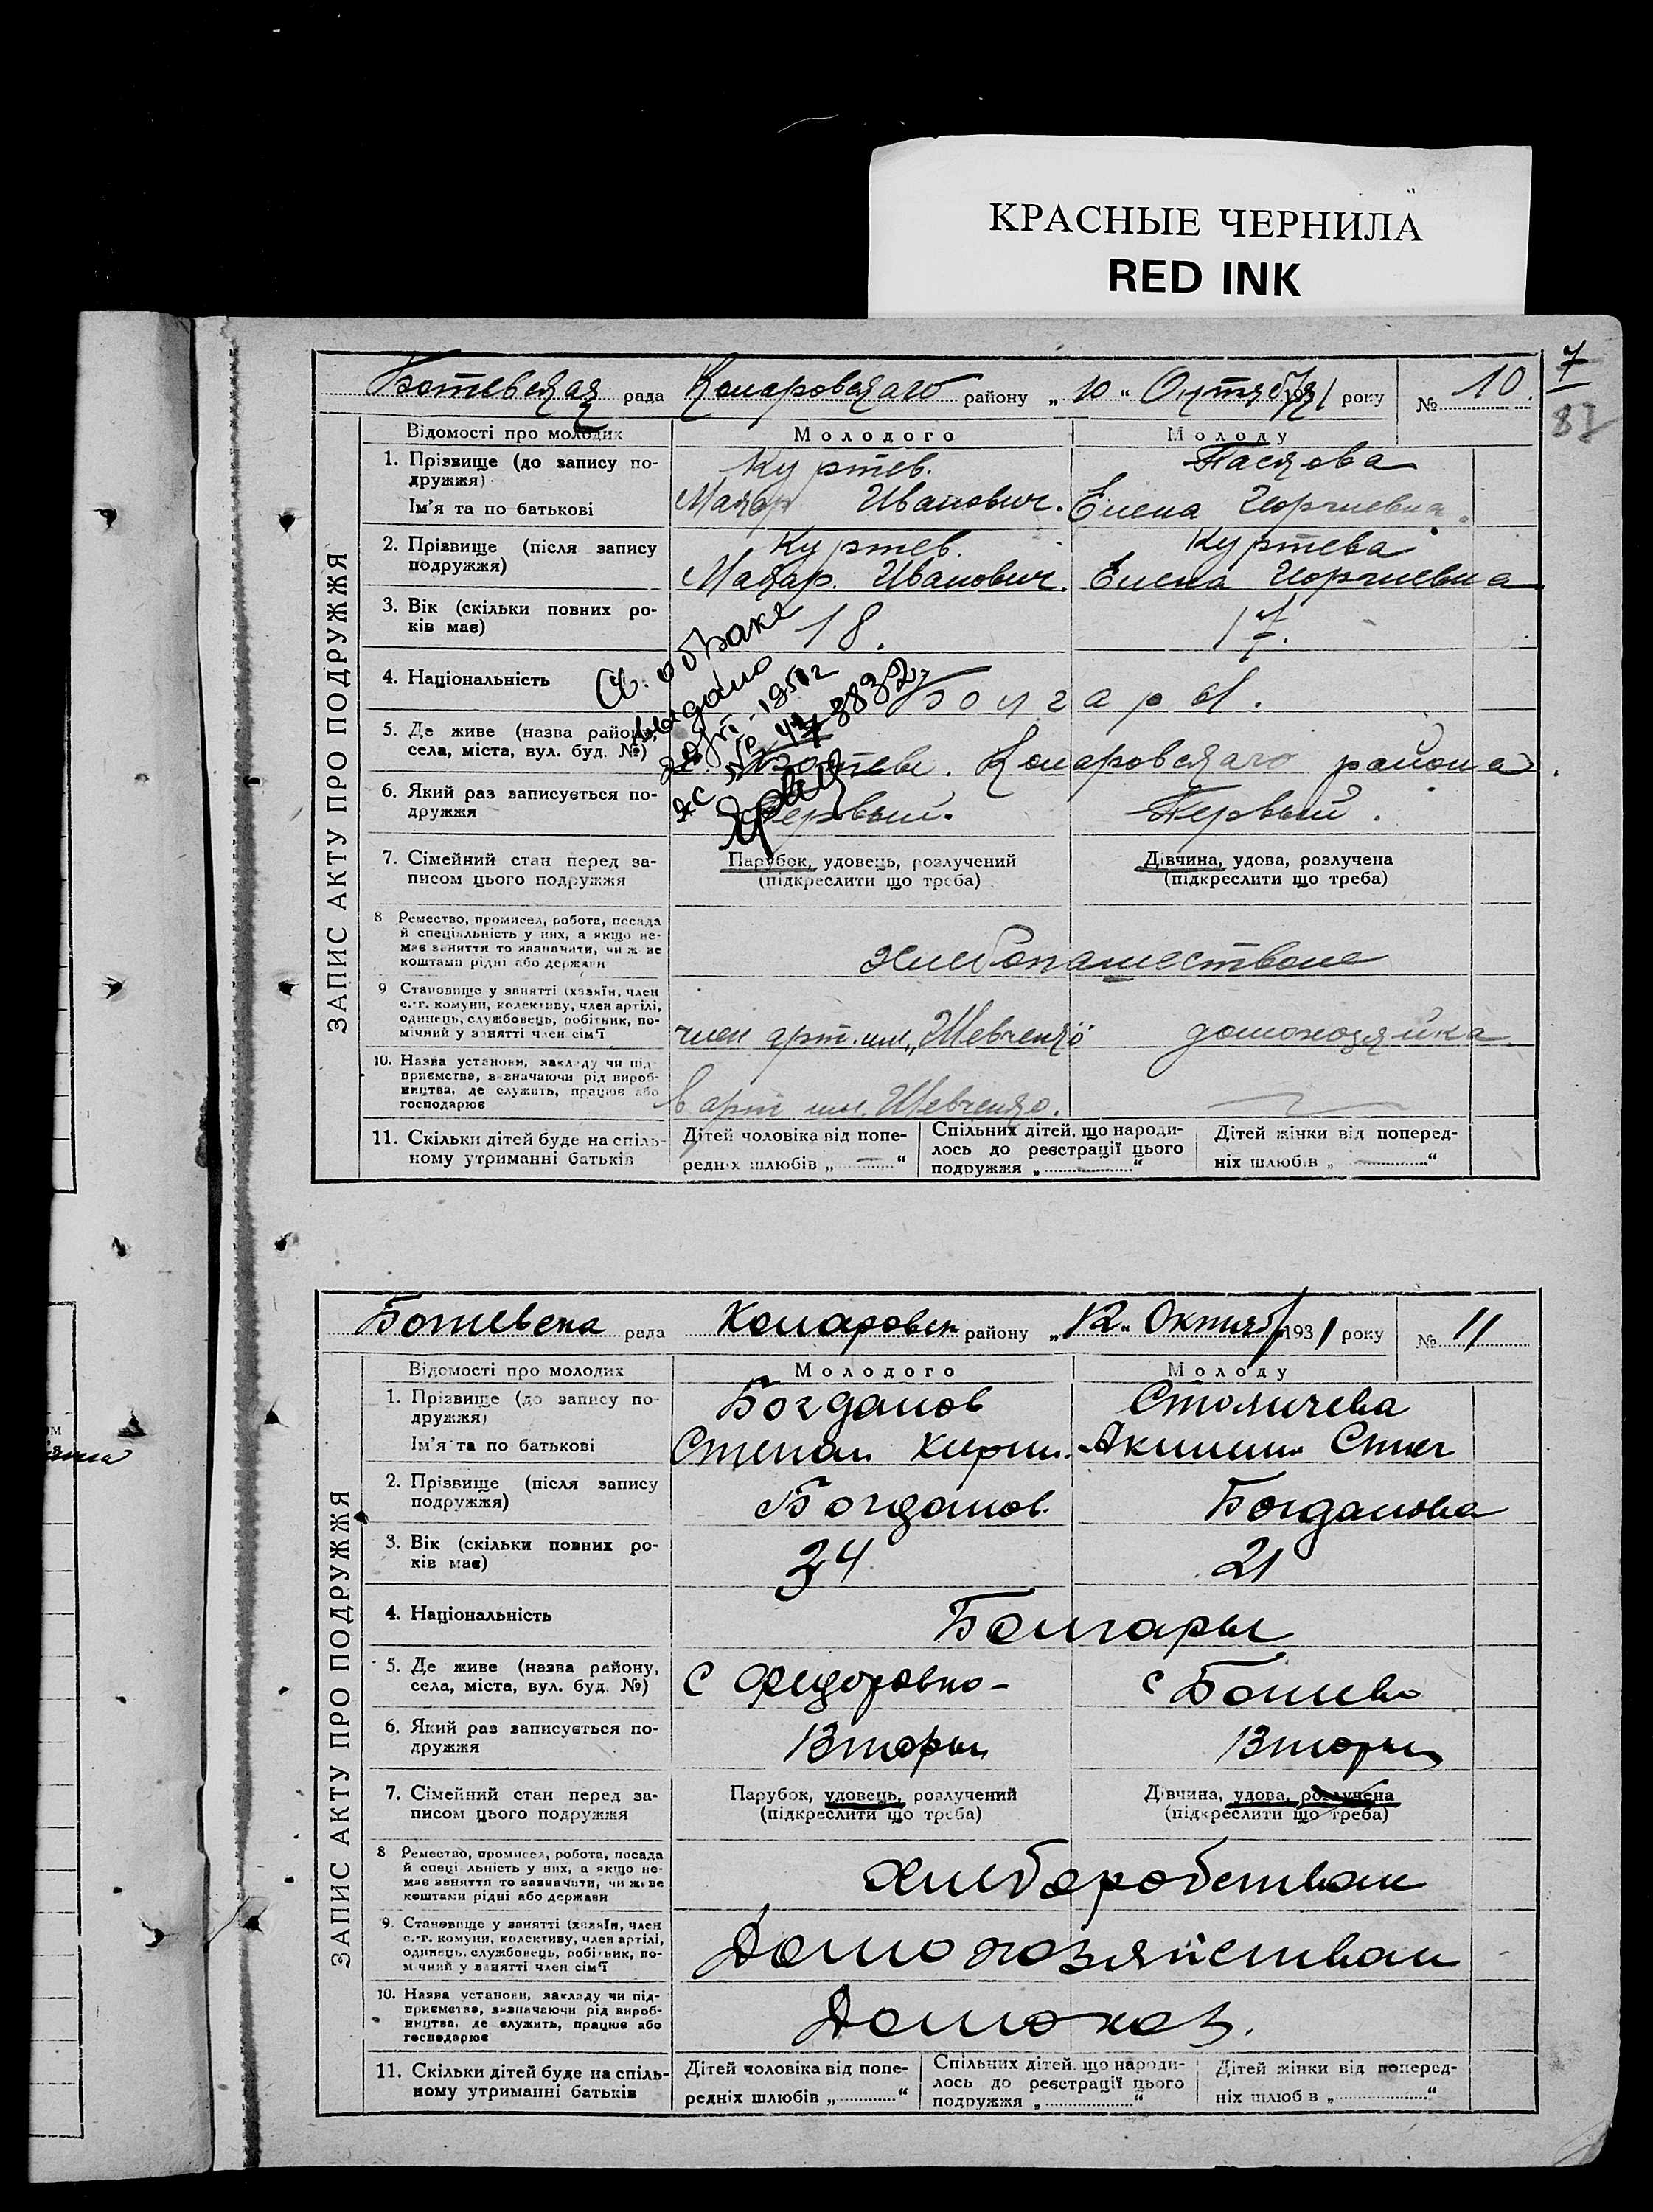 КРАСНЫЕ ЧЕРНИЛА
RED INK
7
87
Ботевская рада Комаровского району „10“ Октября 1931 року № 10.
ЗАПИС АКТУ ПРО ПОДРУЖЖЯ
Відомості про молодих Молодого Молоду
1. Прізвище (до запису по- Куртев. Паскова
дружжя)
Ім'я та по батькові Макар Иванович. Елена Георгиевна.
2. Прізвище (після запису Куртев. Куртева
подружжя) Макар. Иванович. Елена Георгиевна
3. Вік (скільки повних ро- 18. 17.
ків має)
Св. о браке
выдано
4. Національність Болгары.
5. Де живе (назва району,
села, міста, вул. буд. №) с. Ботево. Комаровского района.
6. Який раз записується по- Первый. Первый.
дружжя
7. Сімейний стан перед за- Парубок, удовець, розлучений Дівчина, удова, розлучена
писом цього подружжя (підкреслити що треба) (підкреслити що треба)
8 Ремество, промисел, робота, посада
й спеціяльність у них, а якщо не-
має заняття то зазначити, чи живе
коштами рідні або держави хлебопашеством
9 Становище у занятті (хазяїн, член
с.-г. комуни, колективу, член артілі,
одинець, службовець, робітник, по-
мічний у занятті член сім'ї член арт. им. „Шевченко" домохозяйка
10. Назва установи, закладу чи під-
приємства, визначаючи рід вироб-
ництва, де служить, працює або
господарює в арт им. Шевченко.
11. Скільки дітей буде на спіль- Дітей чоловіка від попе- Спільних дітей, що народи- Дітей жінки від поперед-
ному утриманні батьків редніх шлюбів „ — “ лось до реєстрації цього ніх шлюбів „ — “
подружжя „ “
Ботевска рада Комаровск району „12“ Октяб 1931 року № 11
ЗАПИС АКТУ ПРО ПОДРУЖЖЯ
Відомості про молодих Молодого Молоду
1. Прізвище (до запису по- Богданов Столичева
дружжя)
Ім'я та по батькові Степан Кирил.
2. Прізвище (після запису
подружжя) Богданов. Богданова
3. Вік (скільки повних ро- 34 21
ків має)
4. Національність Болгары
5. Де живе (назва району, с Федоровка- с Ботево
села, міста, вул. буд. №)
6. Який раз записується по- Вторы Вторы
дружжя
7. Сімейний стан перед за- Парубок, удовець, розлучений Дівчина, удова, розлучена
писом цього подружжя (підкреслити що треба) (підкреслити що треба)
8 Ремество, промисел, робота, посада
й спеціяльність у них, а якщо не-
має заняття то зазначити, чи живе
коштами рідні або держави
9. Становище у занятті (хазяїн, член
с.-г. комуни, колективу, член артілі,
одинець, службовець, робітник, по-
мічний у занятті член сім'ї
10. Назва установи, закладу чи під-
приємства, визначаючи рід вироб-
ництва, де служить, працює або
господарює Домохоз.
11. Скільки дітей буде на спіль- Дітей чоловіка від попе- Спільних дітей, що народи- Дітей жінки від поперед-
ному утриманні батьків редніх шлюбів „ “ лось до реєстрації цього ніх шлюбів „ “
подружжя „ “